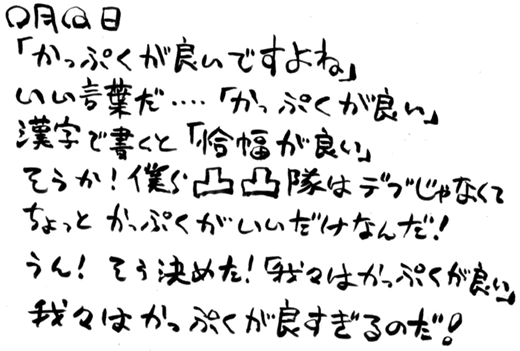 〇月〇日
「かっぷくが良いですよね」
いい言葉だ‥‥「かっぷくが良い」
漢字で書くと「恰幅が良い」
そうか！僕ら凸凸隊はデブじゃなくて
ちょっとかっぷくがいいだけなんだ！
うん！そう決めた！「我々はかっぷくが良い」
我々はかっぷくが良すぎるのだ！